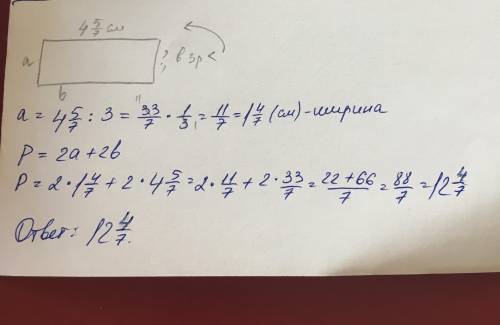 4 5/7 см
a ? в 3р <
b
a = 4 5/7 : 3 = 33/7 · 1/3 = 11/7 = 1 4/7 (см) - ширина
P = 2a + 2b
P = 2 · 1 4/7 + 2 · 4 5/7 = 2 · 11/7 + 2 · 33/7 = 22 + 66/7 = 88/7 = 12 4/7
Ответ: 12 4/7.